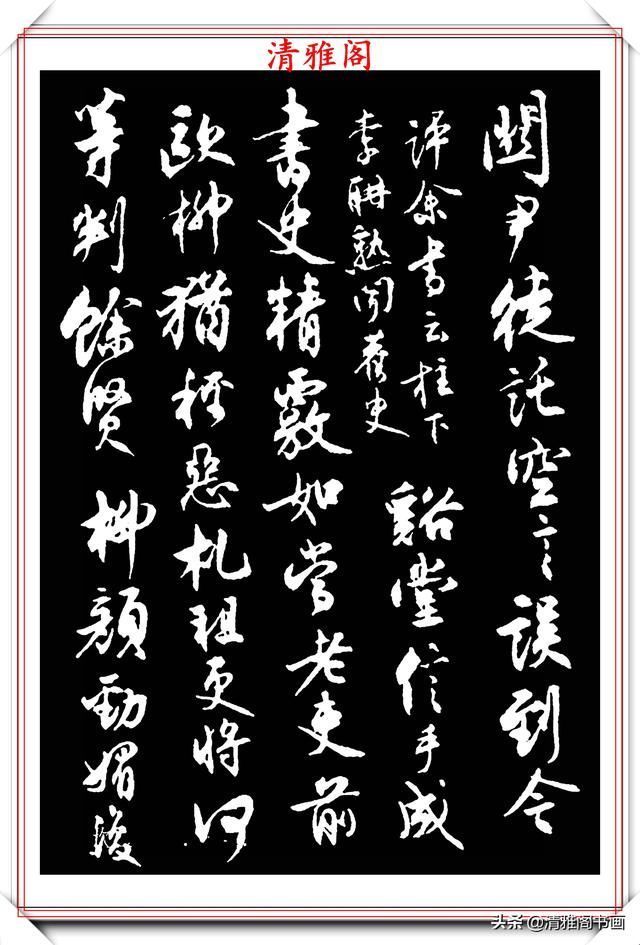 清雅阁
關尹徒託空言誤到今
評余書云柱下
李耼熟聞舊史
谿堂信手成
書史精覈如當老吏前
歐柳猶穉惡札祖更將何
等判餘賢 柳顏勁媚陵
头条@清雅阁书画